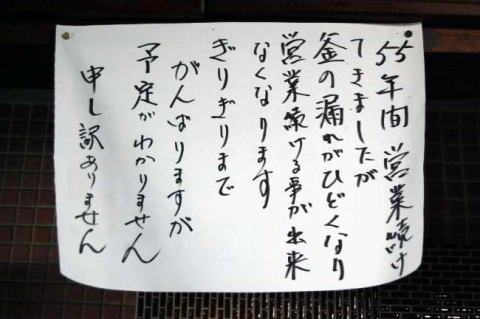 55年間営業続け
てきましたが
釜の漏れがひどくなり
営業続ける事が出来
なくなります
ぎりぎりまで
がんばりますが
予定がわかりません
申し訳ありません